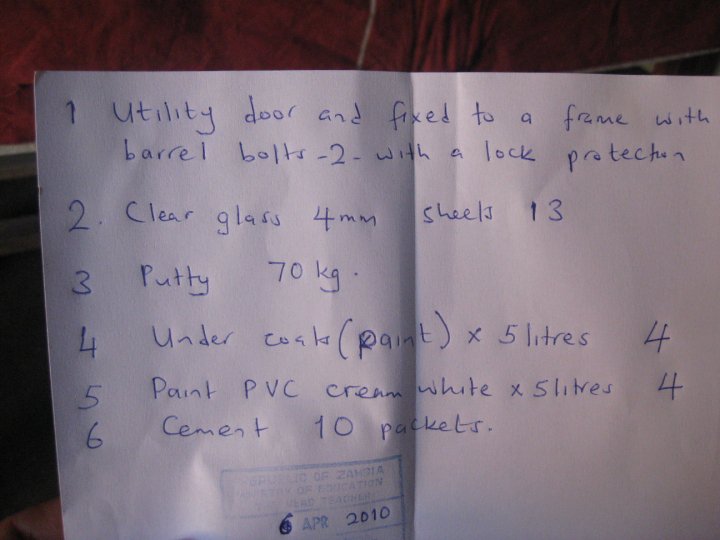 1 Utility door and fixed to a frame with
barrel bolts -2- with a lock protection
2. Clear glass 4mm sheets 13
3 Putty 70 kg.
4 Under coats (paint) x 5 litres 4
5 Paint PVC cream white x 5 litres 4
6 Cement 10 packets.
REPUBLIC OF ZAMBIA
MINISTRY OF EDUCATION
HEAD TEACHER
6 APR 2010